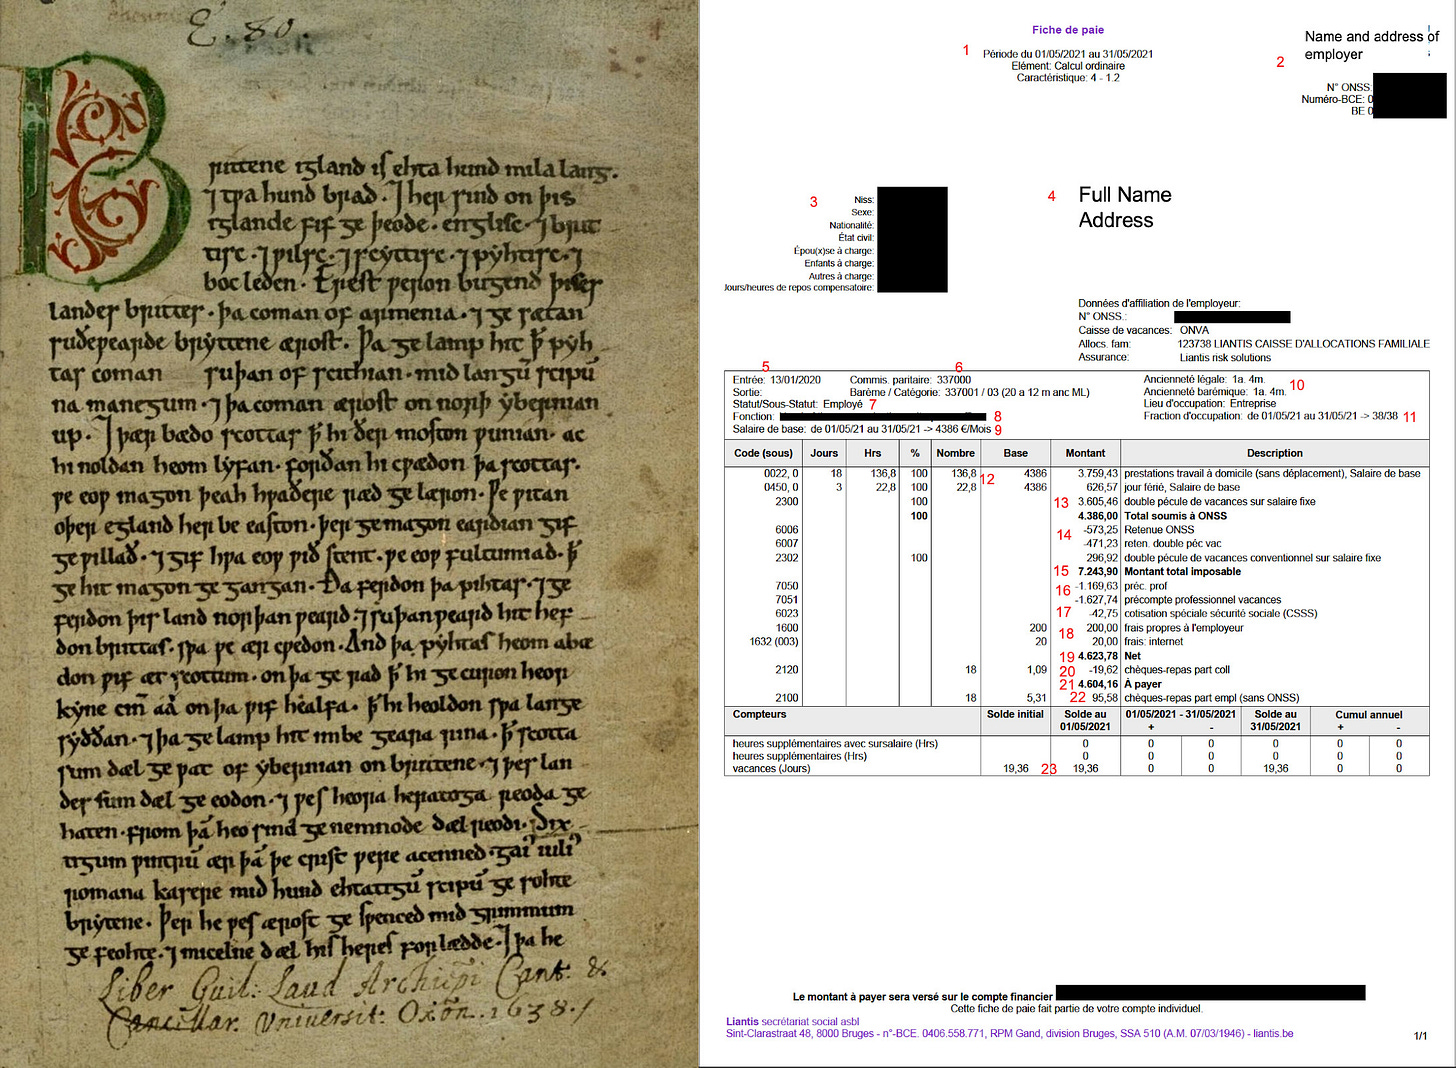 E. 80.
Brittene igland is ehta hund mila lang.
⁊ twa hund brad. ⁊ her sind on þis
iglande fif ge þeode. englisc. ⁊ brit
tisc. ⁊ wilsc. ⁊ scyttisc. ⁊ pyhtisc. ⁊
boc leden. Erest weron bugend þises
landes brittes. þa coman of armenia. ⁊ ge sætan
suðewearde bryttene ærost. Þa ge lamp hit þ̄ pyh
tas coman suþan of scithian. mid langū scipū
na manegum. ⁊ þa coman ærost on norþ ybernian
up. ⁊ þær bædo scottas þ̄ hi ðer moston wunian. ac
hi noldan heom lyfan. forðan hi cwædon þa scottas.
we eow magon þeah hwaðere ræd ge læron. We witan
oþer egland her be easton. þer ge magon eardian gif
ge willað. ⁊ gif hwa eow wið stent. we eow fultumiað. þ̄
ge hit magon ge gangan. Ða ferdon þa pihtas. ⁊ ge
ferdon þis land norþan weard. ⁊ suþan weard hit hef
don brittas. swa we ær cwedon. And þa pyhtas heom abæ
don wif æt scottum. on þa ge rad þ̄ hi ge curon heor
kyne cin̄ aa on þa wif healfa. þ̄ hi heoldon swa lange
syððan. ⁊ þa ge lamp hit imbe geara rina. þ̄ scotta
sum dæl ge wat of ybernian on brittene. ⁊ þes lan
des sum dæl ge eodon. ⁊ wes heora heratoga reoda ge
haten. from þā heo sind ge nemnode dæl reodi. Six
tigum wintrū ær þā þe crist were acenned. gai' iuli'
romana kasere mid hund ehtatigū scipū ge sohte
brytene. Þer he wes ærost ge swenced mid grimmum
ge feohte. ⁊ micelne dæl his heres forlædde. ⁊ þa he
Liber Guil: Laud Archiep̄i Cant: &
Cancellar. Universit: Oxōn. 1638.
Fiche de paie
1 Période du 01/05/2021 au 31/05/2021
Elément: Calcul ordinaire
Caractéristique: 4 - 1.2
Name and address of
employer
2
N° ONSS:
Numéro-BCE: 0
BE 0
3 Niss:
Sexe:
Nationalité:
État civil:
Épou(x)se à charge:
Enfants à charge:
Autres à charge:
Jours/heures de repos compensatoire:
4 Full Name
Address
Données d'affiliation de l'employeur:
N° ONSS.:
Caisse de vacances: ONVA
Allocs. fam: 123738 LIANTIS CAISSE D'ALLOCATIONS FAMILIALE
Assurance: Liantis risk solutions
5 6
Entrée: 13/01/2020 Commis. paritaire: 337000 Ancienneté légale: 1a. 4m. 10
Sortie: Barème / Catégorie: 337001 / 03 (20 a 12 m anc ML) Ancienneté barémique: 1a. 4m.
Statut/Sous-Statut: Employé 7 Lieu d'occupation: Entreprise
Fonction: 8 Fraction d'occupation: de 01/05/21 au 31/05/21 -> 38/38 11
Salaire de base: de 01/05/21 au 31/05/21 -> 4386 €/Mois 9
Code (sous) Jours Hrs % Nombre Base Montant Description
0022, 0 18 136,8 100 136,8 12 4386 3.759,43 prestations travail à domicile (sans déplacement), Salaire de base
0450, 0 3 22,8 100 22,8 4386 626,57 jour férié, Salaire de base
2300 100 13 3.605,46 double pécule de vacances sur salaire fixe
100 4.386,00 Total soumis à ONSS
6006 14 -573,25 Retenue ONSS
6007 -471,23 reten. double péc vac
2302 100 296,92 double pécule de vacances conventionnel sur salaire fixe
15 7.243,90 Montant total imposable
7050 16 -1.169,63 préc. prof
7051 -1.627,74 précompte professionnel vacances
6023 17 -42,75 cotisation spéciale sécurité sociale (CSSS)
1600 200 18 200,00 frais propres à l'employeur
1632 (003) 20 20,00 frais: internet
19 4.623,78 Net
2120 18 1,09 20 -19,62 chèques-repas part coll
21 4.604,16 À payer
2100 18 5,31 22 95,58 chèques-repas part empl (sans ONSS)
Compteurs Solde initial Solde au 01/05/2021 - 31/05/2021 Solde au Cumul annuel
01/05/2021 + - 31/05/2021 + -
heures supplémentaires avec sursalaire (Hrs) 0 0 0 0 0 0
heures supplémentaires (Hrs) 0 0 0 0 0 0
vacances (Jours) 19,36 23 19,36 0 0 19,36 0 0
Le montant à payer sera versé sur le compte financier
Cette fiche de paie fait partie de votre compte individuel.
Liantis secrétariat social asbl
Sint-Clarastraat 48, 8000 Bruges - n°-BCE. 0406.558.771, RPM Gand, division Bruges, SSA 510 (A.M. 07/03/1946) - liantis.be
1/1